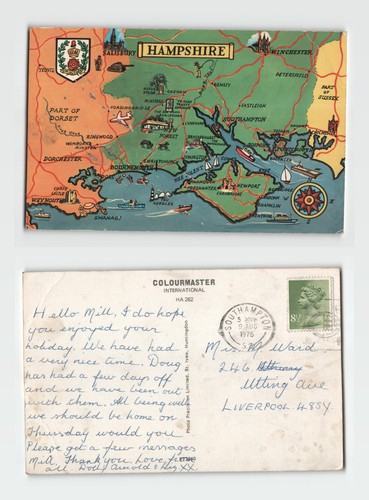 HAMPSHIRE
SALISBURY
WINCHESTER
YEOVIL
ROMSEY
PETERSFIELD
PART OF
SUSSEX
PART OF
DORSET
FORDINGBRIDGE
EASTLEIGH
SOUTHAMPTON
RINGWOOD
WIMBORNE
MINSTER
DORCHESTER
BOURNEMOUTH
CHRISTCHURCH
CORFE
CASTLE
WEYMOUTH
SWANAGE
THE
NEEDLES
THE SOLENT
YARMOUTH
FRESHWATER
NEWPORT
SANDOWN
SHANKLIN
VENTNOR
COLOURMASTER
INTERNATIONAL
HA 262
Photo Precision Limited, St. Ives, Huntingdon
SOUTHAMPTON
9 AUG
1976
8½P
Hello Mill, I do hope
you enjoyed your
holiday. We have had
a very nice time. Doug
has had a few days off
and we have been out
with them. All being well
we should be home on
Thursday would you
Please get a few messages
Mill. Thank you Love from
all. Doll Arnold & Reg XX
Mrs. M. Ward
246
Utting Ave
LIVERPOOL 4